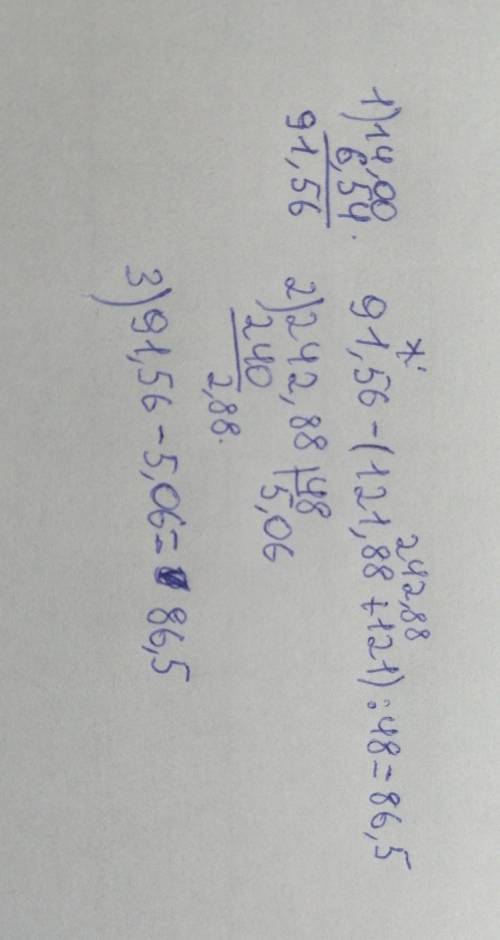 *
242,88
91,56-(121,88+121):48=86,5
1)14,00
6,54
91,56
2)242,88|48
240 5,06
2,88
3)91,56-5,06= 86,5